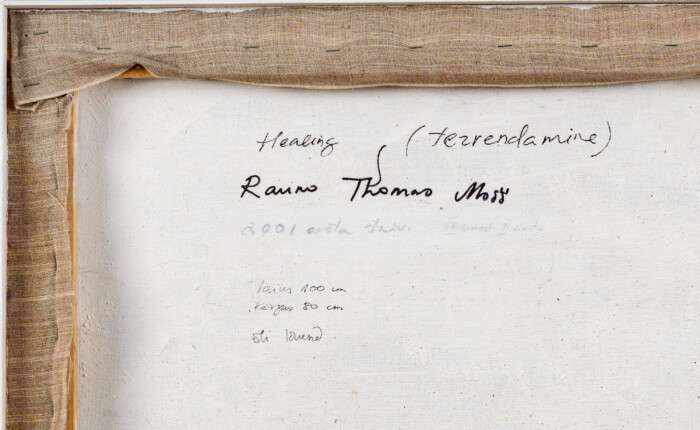 Healing (tervendamine)
Rauno Thomas Moss
2001 aasta
laius 100 cm
kõrgus 80 cm
õli lõuend